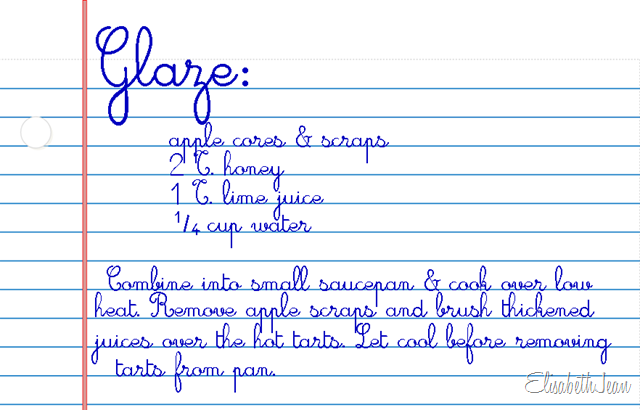 Glaze:
apple cores & scraps
2 T. honey
1 T. lime juice
1/4 cup water
Combine into small saucepan & cook over low
heat. Remove apple scraps and brush thickened
juices over the hot tarts. Let cool before removing
tarts from pan.
ElisabethJean